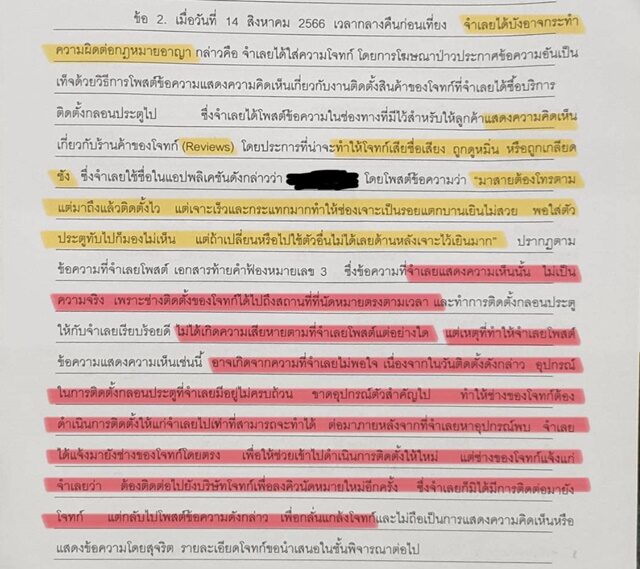 ข้อ 2. เมื่อวันที่ 14 สิงหาคม 2566 เวลากลางคืนก่อนเที่ยง จำเลยได้บังอาจกระทำ
ความผิดต่อกฎหมายอาญา กล่าวคือ จำเลยได้ใส่ความโจทก์ โดยการโฆษณาป่าวประกาศข้อความอันเป็น
เท็จด้วยวิธีการโพสต์ข้อความแสดงความคิดเห็นเกี่ยวกับงานติดตั้งสินค้าของโจทก์ที่จำเลยได้ซื้อบริการ
ติดตั้งกลอนประตูไป ซึ่งจำเลยได้โพสต์ข้อความในช่องทางที่มีไว้สำหรับให้ลูกค้าแสดงความคิดเห็น
เกี่ยวกับร้านค้าของโจทก์ (Reviews) โดยประการที่น่าจะทำให้โจทก์เสียชื่อเสียง ถูกดูหมิ่น หรือถูกเกลียด
ชัง ซึ่งจำเลยใช้ชื่อในแอปพลิเคชันดังกล่าวว่า โดยโพสต์ข้อความว่า "มาสายต้องโทรตาม
แต่มาถึงแล้วติดตั้งไว แต่เจาะเร็วและกระแทกมากทำให้ช่องเจาะเป็นรอยแตกบานเยินไม่สวย พอใส่ตัว
ประตูทับไปก็มองไม่เห็น แต่ถ้าเปลี่ยนหรือไปใช้ตัวอื่นไม่ได้เลยด้านหลังเจาะไว้เยินมาก" ปรากฏตาม
ข้อความที่จำเลยโพสต์ เอกสารท้ายคำฟ้องหมายเลข 3 ซึ่งข้อความที่จำเลยแสดงความเห็นนั้น ไม่เป็น
ความจริง เพราะช่างติดตั้งของโจทก์ได้ไปถึงสถานที่ที่นัดหมายตรงตามเวลา และทำการติดตั้งกลอนประตู
ให้กับจำเลยเรียบร้อยดี ไม่ได้เกิดความเสียหายตามที่จำเลยโพสต์แต่อย่างใด แต่เหตุที่ทำให้จำเลยโพสต์
ข้อความแสดงความเห็นเช่นนี้ อาจเกิดจากความที่จำเลยไม่พอใจ เนื่องจากในวันติดตั้งดังกล่าว อุปกรณ์
ในการติดตั้งกลอนประตูที่จำเลยมีอยู่ไม่ครบถ้วน ขาดอุปกรณ์ตัวสำคัญไป ทำให้ช่างของโจทก์ต้อง
ดำเนินการติดตั้งให้แก่จำเลยไปเท่าที่สามารถจะทำได้ ต่อมาภายหลังจากที่จำเลยหาอุปกรณ์พบ จำเลย
ได้แจ้งมายังช่างของโจทก์โดยตรง เพื่อให้ช่วยเข้าไปดำเนินการติดตั้งให้ใหม่ แต่ช่างของโจทก์แจ้งแก่
จำเลยว่า ต้องติดต่อไปยังบริษัทโจทก์เพื่อลงคิวนัดหมายใหม่อีกครั้ง ซึ่งจำเลยก็มิได้มีการติดต่อมายัง
โจทก์ แต่กลับไปโพสต์ข้อความดังกล่าว เพื่อกลั่นแกล้งโจทก์และไม่ถือเป็นการแสดงความคิดเห็นหรือ
แสดงข้อความโดยสุจริต รายละเอียดโจทก์ขอนำเสนอในชั้นพิจารณาต่อไป